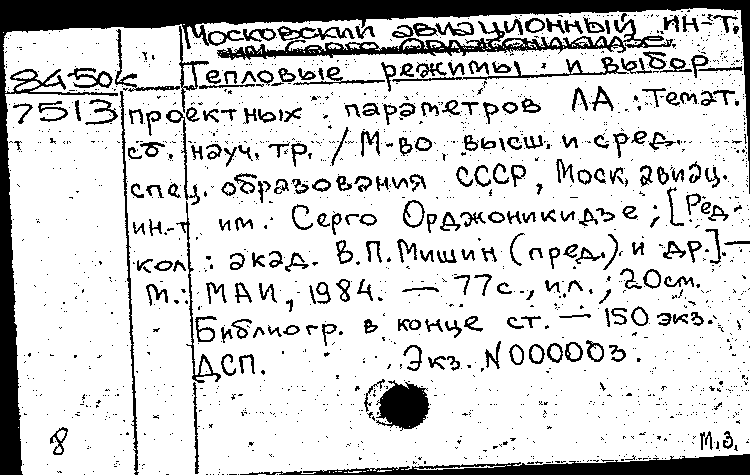 Московский авиационный ин-т.
им Серго Орджоникидзе.
8450к Тепловые режимы и выбор
7513 проектных параметров ЛА : Темат.
сб. науч. тр. / М-во высш. и сред.
спец. образования СССР, Моск. авиац.
ин-т им. Серго Орджоникидзе ; [Ред-
кол. : акад. В.П. Мишин (пред.) и др.]. —
М. : МАИ, 1984. — 77 с., ил. ; 20 см.
Библиогр. в конце ст. — 150 экз.
ДСП. Экз. N 000003.
8 М.З.